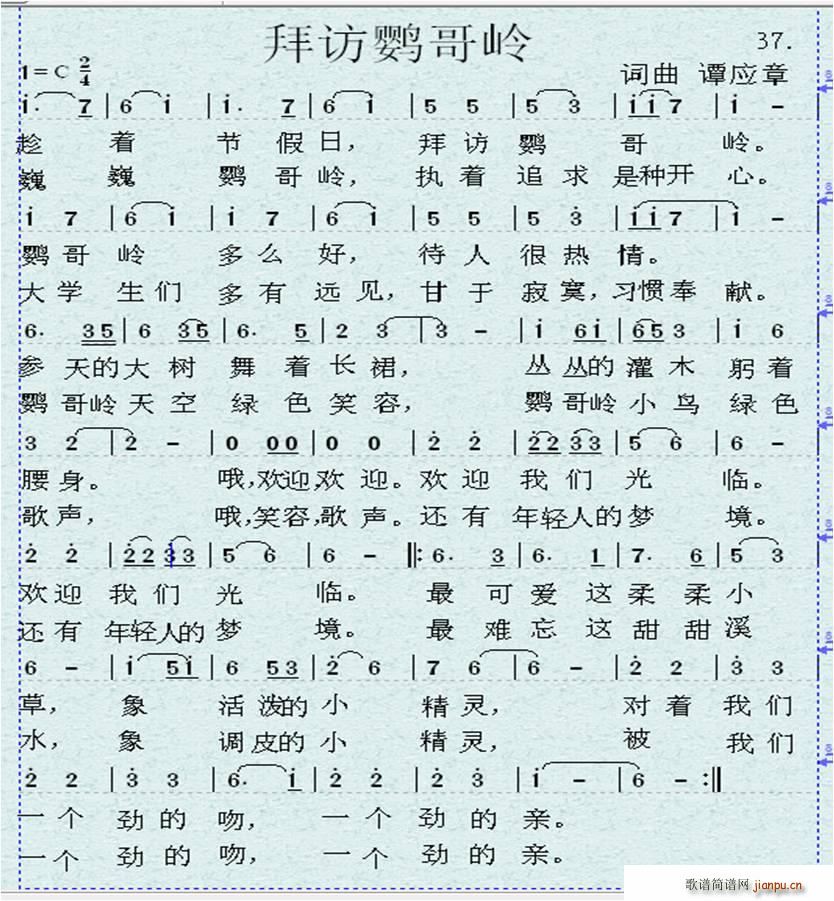 拜访鹦哥岭
37.
1=C 2/4
词曲 谭应章
i. 7 | 6 i | i. 7 | 6 i | 5 5 | 5 3 | i i 7 | i - |
趁 着 节 假 日, 拜 访 鹦 哥 岭。
巍 巍 鹦 哥 岭, 执 着 追 求 是种开 心。
i 7 | 6 i | i 7 | 6 i | 5 5 | 5 3 | i i 7 | i - |
鹦 哥 岭 多 么 好, 待 人 很 热 情。
大 学 生 们 多 有 远 见, 甘 于 寂 寞, 习 惯 奉 献。
6. 3 5 | 6 3 5 | 6. 5 | 2 3 | 3 - | i 6 i | 6 5 3 | i 6
参 天的大 树 舞 着 长 裙, 丛 丛的 灌 木 躬 着
鹦 哥岭 天 空 绿 色 笑 容, 鹦 哥岭 小 鸟 绿 色
3 2 | 2 - | 0 0 0 | 0 0 | 2 2 | 2 2 3 3 | 5 6 | 6 - |
腰 身。 哦,欢迎,欢 迎。欢 迎 我 们 光 临。
歌 声, 哦,笑容,歌 声。还 有 年轻人的 梦 境。
2 2 | 2 2 3 3 | 5 6 | 6 - ‖: 6. 3 | 6. 1 | 7. 6 | 5 3
欢 迎 我 们 光 临。 最 可 爱 这 柔 柔 小
还 有 年轻人的 梦 境。 最 难 忘 这 甜 甜 溪
6 - | i 5 i | 6 5 3 | 2 6 | 7 6 | 6 - | 2 2 | 3 3
草, 象 活 泼的 小 精 灵, 对 着 我 们
水, 象 调 皮的 小 精 灵, 被 我 们
2 2 | 3 3 | 6. i | 2 2 | 2 3 | i - | 6 - :‖
一 个 劲 的 吻, 一 个 劲 的 亲。
一 个 劲 的 吻, 一 个 劲 的 亲。
歌谱简谱网 jianpu.cn